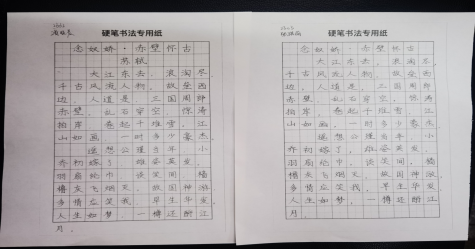 硬笔书法专用纸
念奴娇·赤壁怀古
苏轼
大江东去,浪淘尽,
千古风流人物,故垒西
边,人道是,三国周郎
赤壁,乱石穿空,惊涛
拍岸,卷起千堆雪,江
山如画,一时多少豪杰,
遥想公瑾当年,小
乔初嫁了,雄姿英发,
羽扇纶巾,谈笑间,樯
橹灰飞烟灭,故国神游,
多情应笑我,早生华发,
人生如梦,一樽还酹江
月。
硬笔书法专用纸
念奴娇·赤壁怀古
大江东去,浪淘尽,
千古风流人物,故垒西
边,人道是,三国周郎
赤壁,乱石穿空,惊涛
拍岸,卷起千堆雪,江
山如画,一时多少豪杰
遥想公瑾当年,小
乔初嫁了,雄姿英发,
羽扇纶巾,谈笑间,樯
橹灰飞烟灭,故国神游,
多情应笑我,早生华发
人生如梦,一樽还酹江
月。